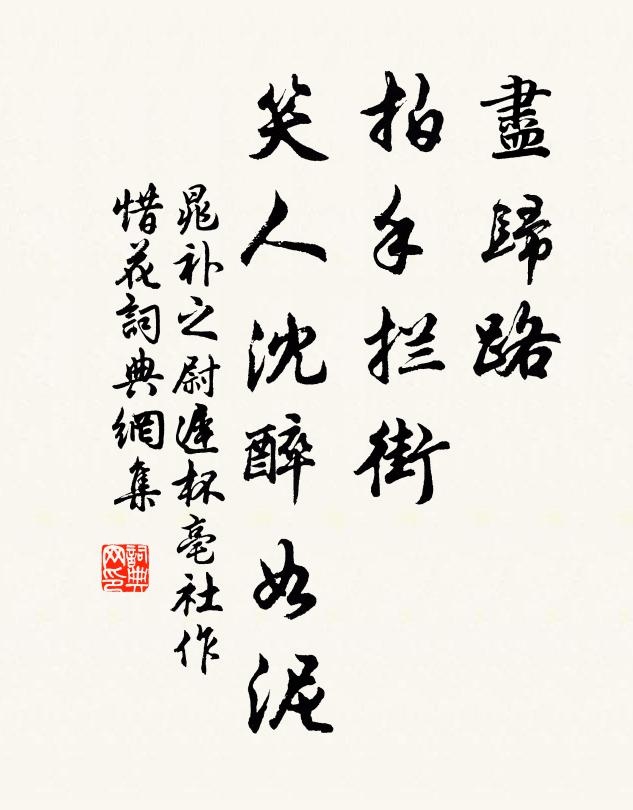 盡歸路
拍手拦街
笑人沈醉如泥
晁补之尉遲杯亳社作
惜花詞典網集
詞典网印